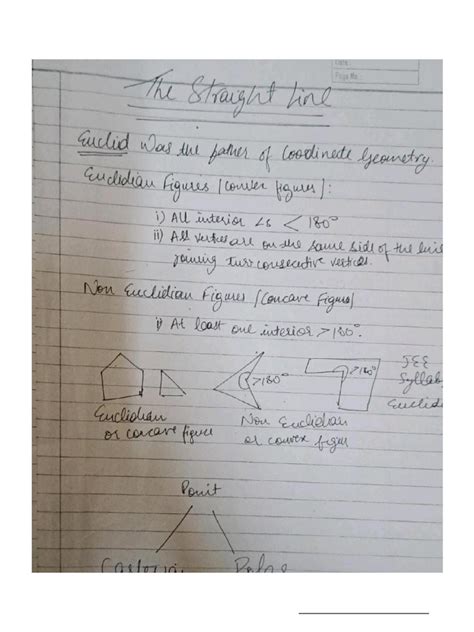 Date
Page No.
The Straight Line
Euclid was the father of Coordinate Geometry.
Euclidian Figures (Convex figures):
i) All interior ∠s < 180°
ii) All vertices are on the same side of the line
joining two consecutive vertices.
Non Euclidian Figures (Concave Figure)
i) At least one interior > 180°.
>180°
>180°
JEE
Syllab
Euclid
Euclidian
or concave figure
Non Euclidian
or convex figure
Point